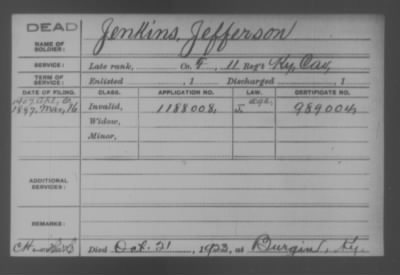 DEAD
NAME OF SOLDIER: Jenkins, Jefferson
SERVICE: Late rank, Co. F, 11 Reg't Ky. Cav,
TERM OF SERVICE: Enlisted , 1 Discharged , 1
DATE OF FILING. CLASS. APPLICATION NO. LAW. CERTIFICATE NO.
1897, Mar, 16 Invalid, 1188008, age. 989004,
Widow,
Minor,
ADDITIONAL SERVICES:
REMARKS:
Died Oct. 21, 1923, at Burgin, Ky.